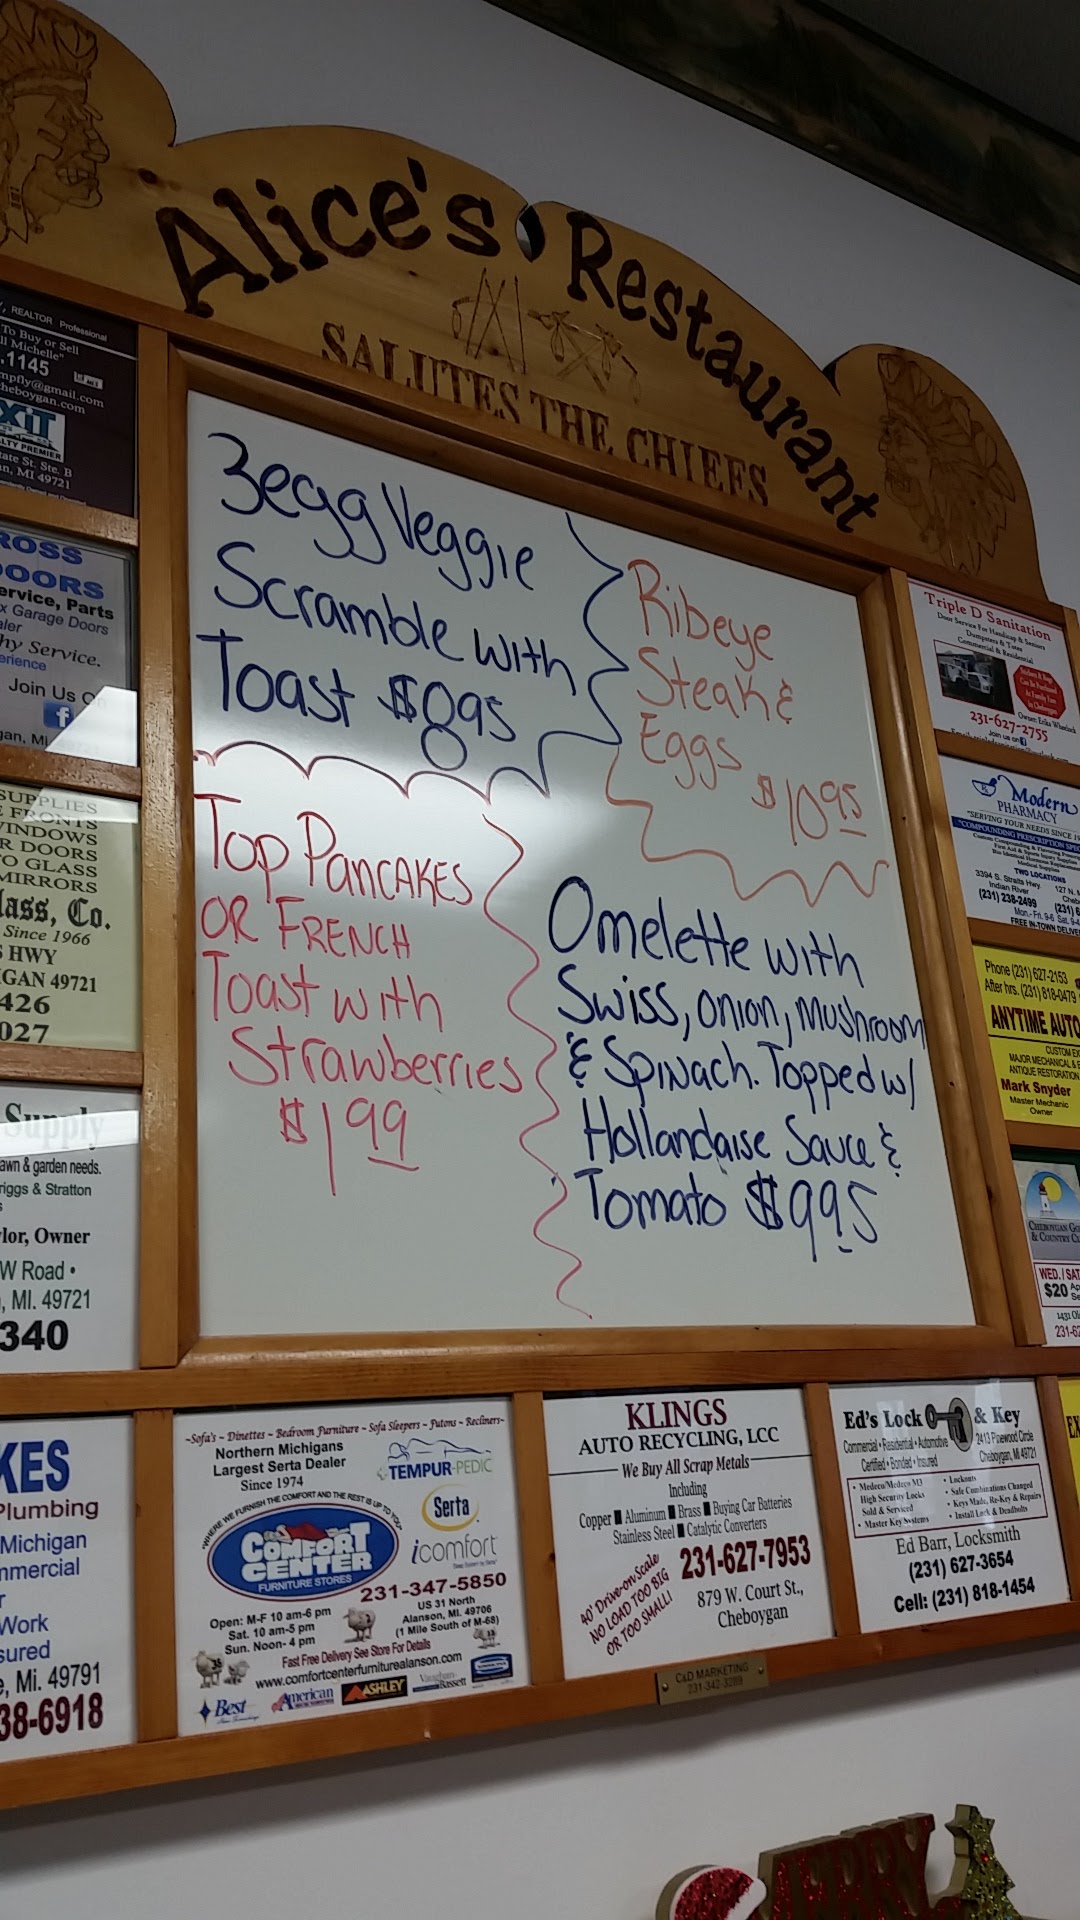 Alice's Restaurant
SALUTES THE CHIEFS
3 egg Veggie
Scramble with
Toast $8.95
Ribeye
Steak &
Eggs $10.95
Top Pancakes
OR FRENCH
Toast with
Strawberries
$1.99
Omelette with
Swiss, onion, mushroom
& Spinach. Topped w/
Hollandaise Sauce &
Tomato $9.95
REALTOR Professional
To Buy or Sell
Michelle"
.1145
mpfly@gmail.com
heboygan.com
XiT
LTY PREMIER
ate St. Ste. B
n, MI 49721
ROSS
DOORS
ervice, Parts
x Garage Doors
aler
hy Service.
erience
Join Us On
f
gan, Mi.
SUPPLIES
E FRONTS
WINDOWS
R DOORS
TO GLASS
MIRRORS
lass, Co.
Since 1966
S HWY
IGAN 49721
426
027
Supply
awn & garden needs.
riggs & Stratton
lor, Owner
W Road •
, MI. 49721
340
KES
Plumbing
Michigan
mmercial
r
Work
sured
e, Mi. 49791
38-6918
~Sofa's ~ Dinettes ~ Bedroom Furniture ~ Sofa Sleepers ~ Futons ~ Recliners~
Northern Michigans
Largest Serta Dealer
Since 1974
TEMPUR-PEDIC
Serta
icomfort
"WHERE WE FURNISH THE COMFORT AND THE REST IS UP TO YOU"
COMFORT
CENTER
FURNITURE STORES
231-347-5850
Open: M-F 10 am-6 pm
Sat. 10 am-5 pm
Sun. Noon- 4 pm
US 31 North
Alanson, MI. 49706
(1 Mile South of M-68)
Fast Free Delivery See Store For Details
www.comfortcenterfurniturealanson.com
Best
American
ASHLEY
Vaughan-
Bassett
KLINGS
AUTO RECYCLING, LCC
We Buy All Scrap Metals
Including
Copper ■ Aluminum ■ Brass ■ Buying Car Batteries
Stainless Steel ■ Catalytic Converters
40' Drive-on Scale
NO LOAD TOO BIG
OR TOO SMALL!
231-627-7953
879 W. Court St.,
Cheboygan
C&D MARKETING
Ed's Lock & Key
Commercial • Residential • Automotive
Certified • Bonded • Insured
2413 Pinewood Circle
Cheboygan, MI 49721
• Medeco/Medeco M3
High Security Locks
Sold & Serviced
• Master Key Systems
• Lockouts
• Safe Combinations Changed
• Keys Made, Re-Key & Repairs
• Install Lock & Deadbolts
Ed Barr, Locksmith
(231) 627-3654
Cell: (231) 818-1454
Triple D Sanitation
Door Service For Handicap & Seniors
Dumpsters & Totes
Commercial & Residential
231-627-2755
Join us on f
Modern
PHARMACY
"SERVING YOUR NEEDS SINCE
TWO LOCATIONS
3394 S. Straits Hwy
Indian River
(231) 238-2499
127 N.
Cheb
(231) 6
Mon.- Fri. 9-6 Sat. 9-4
FREE IN-TOWN DELIVE
Phone (231) 627-2153
After hrs. (231) 818-0479
ANYTIME AUTO
MAJOR MECHANICAL &
ANTIQUE RESTORATION
Mark Snyder
Master Mechanic
Owner
CHEBOYGAN GO
& COUNTRY CL
WED. / SAT
$20
1431 Ol
231-62
EX
MERRY